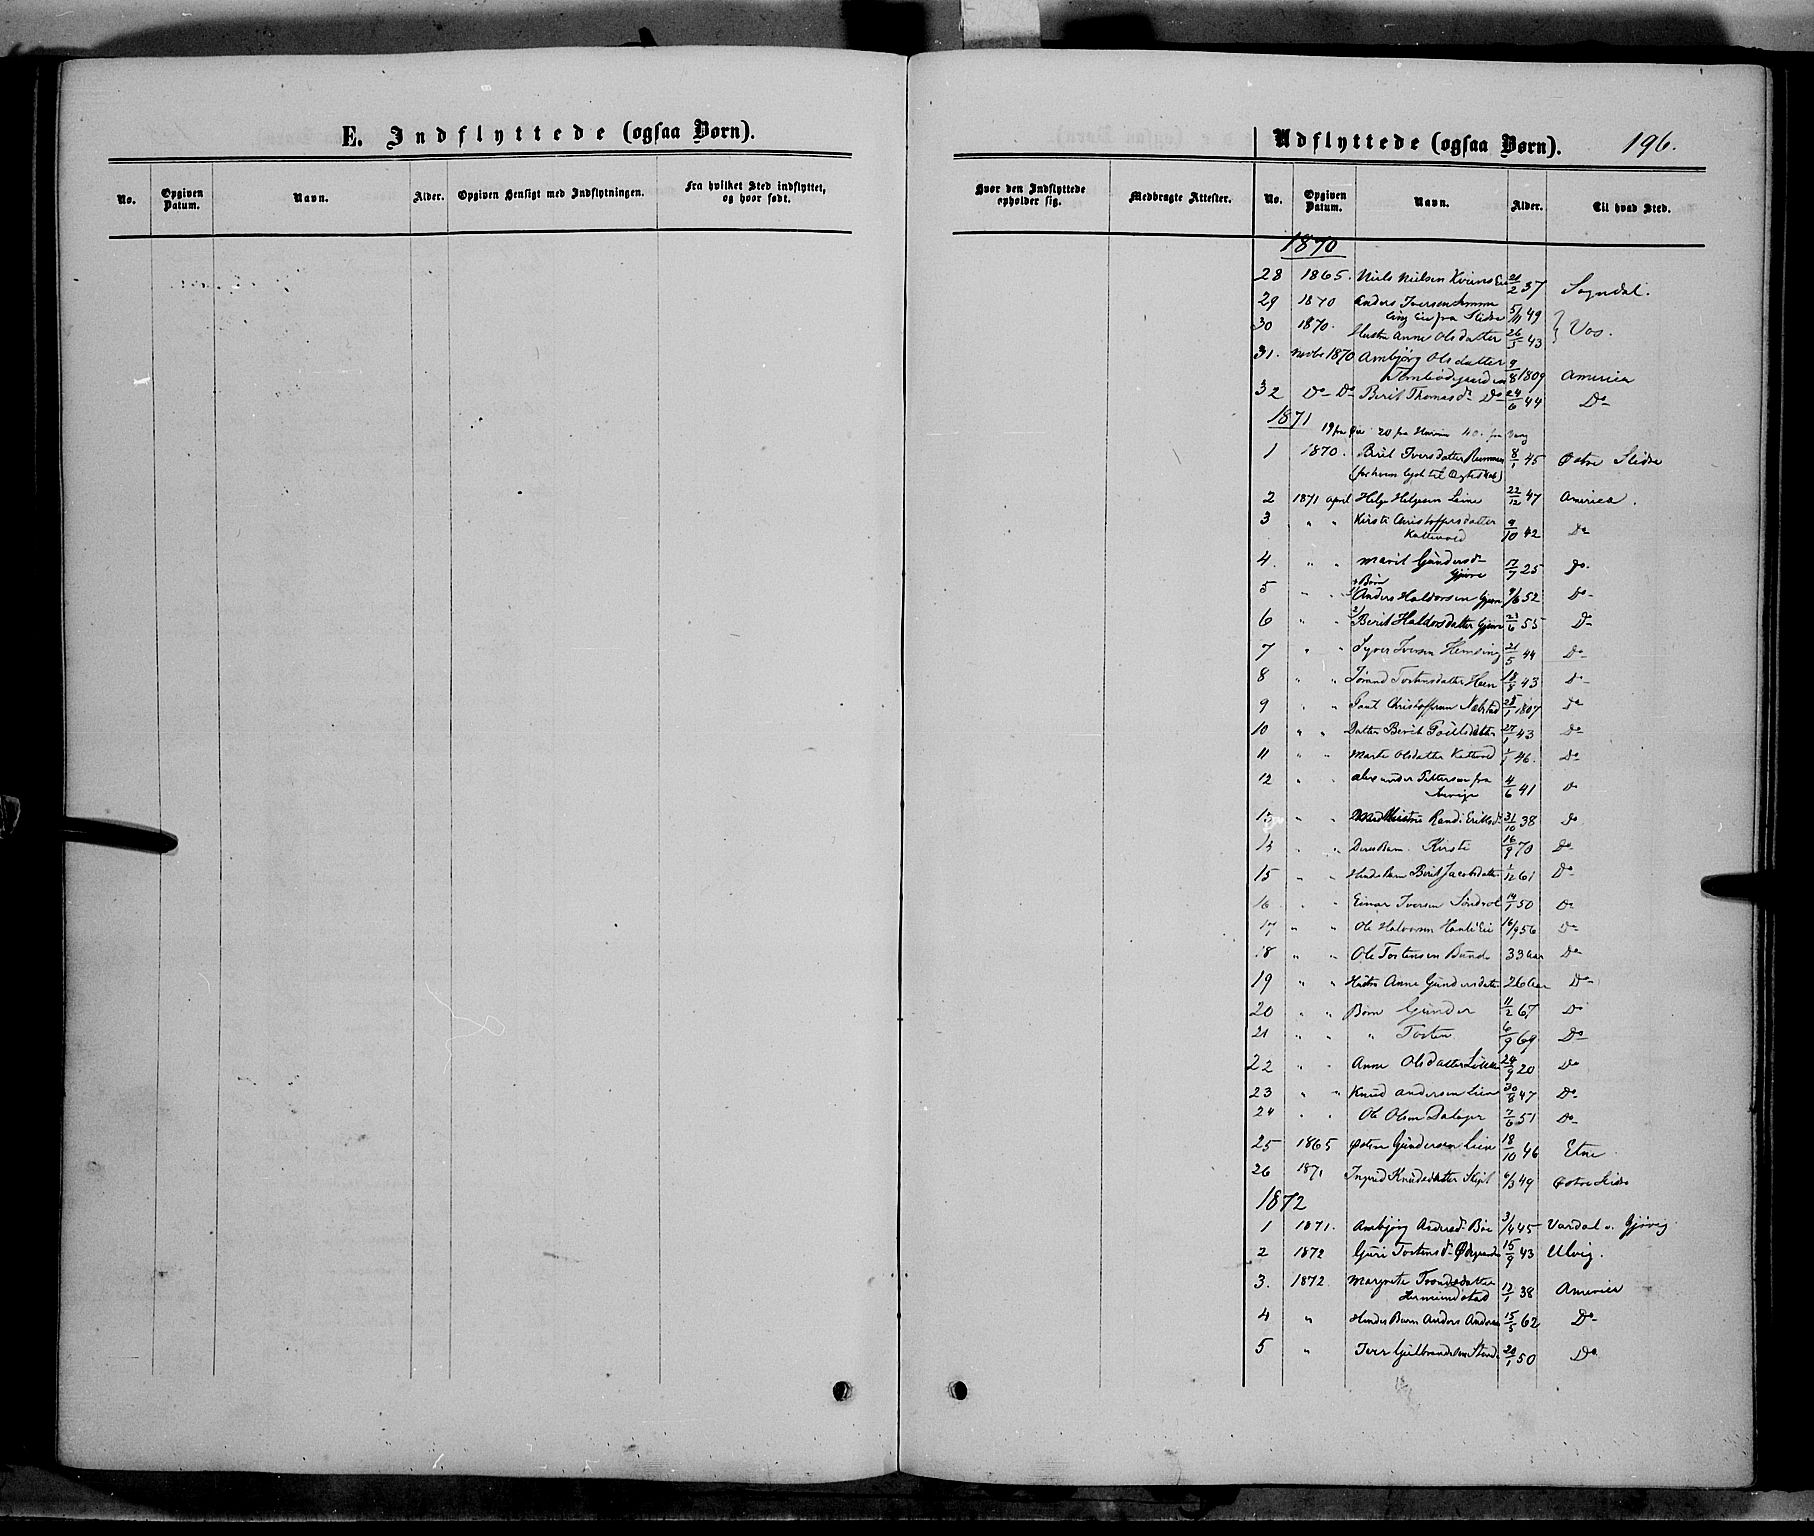 E. Indflyttede (ogsaa Børn).
Udflyttede (ogsaa Børn). 196.
No. Opgiven Datum. Navn. Alder. Opgiven Hensigt med Indflytningen. Fra hvilket Sted indflyttet, og hvor født.
Hvor den Indflyttede opholder sig. Medbragte Attester. No. Opgiven Datum. Navn. Alder. Til hvad Sted.
1870
28 1865. Niels Nielsen 21/2 37 Sogndal.
29 1870 Anders Iversen
fra Slidre 5/11 49
30 1870. Hustru Anne Olsdatter 26/5 43 } Vos.
31. Novbr 1870 Ambjørg Olsdatter
9/8 1809 America
32 Do Do Berit Thomasdr Do 24/6 44 Do
1871
19 fra 20 fra 40 fra Vang
1 1870. Berit Iversdatter 8/1 45 Østre Slidre
(forhem lyst til Ægteskab)
2 1871 April Helge Helgesen Leine 22/12 47 America.
3 " " Kirsti Christoffersdatter
Kattevold 9/10 42 Do
4. " " Marit Gundersdr
Gjevre 17/7 25 Do.
Børn
5 " " Anders Haldorsen Gjevre 9/6 52 Do
6 " " 2) Berit Haldorsdatter Gjevre 23/6 55 Do
7 " " Syver Iversen Hemsing 21/5 44 Do
8 " " Jørand Tostensdatter Heen 18/8 43 Do
9 " " Christoffersen 28/1 1807 Do
10 " " Datter Berit 27/1 43 Do
11 " " Marte Olsdatter Kattevold 1/1 46. Do
12 " " Alexander Pettersen fra
4/6 41 Do
13 " " Hustru Randi Eriksdr 31/10 38 Do
14 " " Deres Barn Kirsti 16/9 70 Do
15 " " Hendes Barn Berit Jacobsdatter 1/12 61 Do
16 " " Einar Iversen Søndrol 14/1 50 Do
17 " " Ole Halvorsen 16/9 56 Do
18 " " Ole Tostensen Bunde 33 aar Do
19 " " Hustru Anne Gundersdatter 26 aar Do
20 " " Børn Gunder 11/2 67 Do
21 " " " Tosten 6/9 69 Do
22 " " Anne Olsdatter 24/9 20 Do
23 " " Knud Andersen Lien 30/8 47 Do
24 " " Ole Olsen 7/6 51 Do
25 1865 Østen Gundersen Lien 18/10 46 Etne
26 1871 Ingrid Knudsdatter 6/3 49 Østre Slidre
1872
1 1871. Ambjørg Andersdr Bøe 3/4 45 Vardal v. Gjøvig
2 1872 Guri Tostensdr 15/9 43 Ulvig.
3. 1872 Margrete Trondsdatter
Hermundstad 12/1 38 America
4 " Hendes Barn Anders Andersen 15/5 62 Do
5 " Iver Gulbrandsen 20/1 50 Do